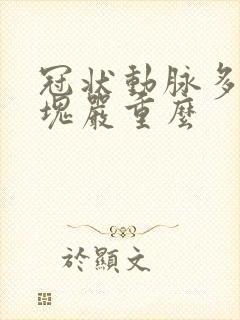 冠狀動脈多
塊嚴重麼
於顯文